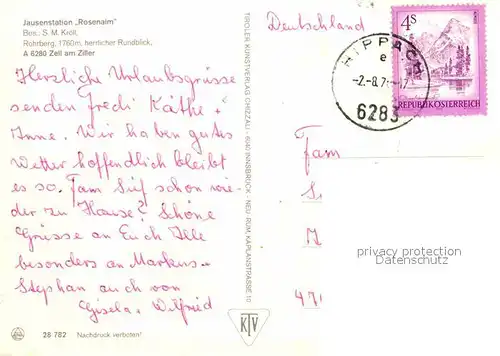 Jausenstation „Rosenalm"
Bes.: S. M. Kroll,
Rohrberg, 1760m, herrlicher Rundblick,
A 6280 Zell am Ziller
Herzliche Urlaubsgrüsse
senden Fredi Käthe +
Anne. Wir haben gutes
Wetter hoffentlich bleibt
es so. Fam Sief schon wie-
der zu Hause? Schöne
Grüsse an Euch Alle
besonders an Markus-
Stephan auch von
Gisela. Wilfried
28 782 Nachdruck verboten!
TIROLER KUNSTVERLAG CHIZZALI · 6040 INNSBRUCK · NEU-RUM, KAPLANSTRASSE 10
KTV
Deutschland
HIPPACH
e
-2.-8.7
6283
4S
REPUBLIK ÖSTERREICH
Fam
privacy protection
www.ansichtskarten-center.de
47